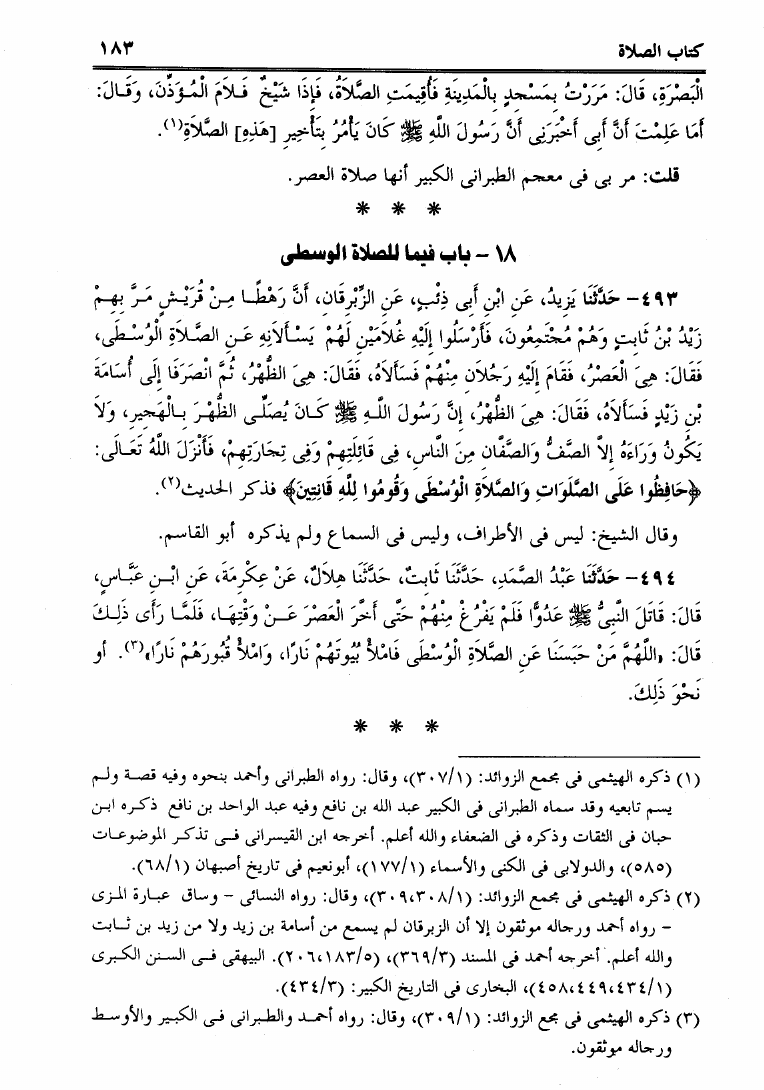 كتاب الصلاة ١٨٣
الْبَصْرَةِ، قَالَ: مَرَرْتُ بِمَسْجِدٍ بِالْمَدِينَةِ فَأُقِيمَتِ الصَّلَاةُ، فَإِذَا شَيْخٌ فَلَامَ الْمُؤَذِّنَ، وَقَالَ:
أَمَا عَلِمْتَ أَنَّ أَبِى أَخْبَرَنِى أَنَّ رَسُولَ اللهِ ﷺ كَانَ يَأْمُرُ بِتَأْخِيرِ [هَذِهِ] الصَّلَاةِ(١).
قلت: مر بى فى معجم الطبرانى الكبير أنها صلاة العصر.
* * *
١٨ - باب فيما للصلاة الوسطى
٤٩٣- حَدَّثَنَا يَزِيدُ، عَنِ ابْنِ أَبِى ذِئْبٍ، عَنِ الزِّبْرِقَانِ، أَنَّ رَهْطًا مِنْ قُرَيْشٍ مَرَّ بِهِمْ
زَيْدُ بْنُ ثَابِتٍ وَهُمْ مُجْتَمِعُونَ، فَأَرْسَلُوا إِلَيْهِ غُلَامَيْنِ لَهُمْ يَسْأَلَانِهِ عَنِ الصَّلَاةِ الْوُسْطَى،
فَقَالَ: هِىَ الْعَصْرُ، فَقَامَ إِلَيْهِ رَجُلَانِ مِنْهُمْ فَسَأَلَاهُ، فَقَالَ: هِىَ الظُّهْرُ، ثُمَّ انْصَرَفَا إِلَى أُسَامَةَ
بْنِ زَيْدٍ فَسَأَلَاهُ، فَقَالَ: هِىَ الظُّهْرُ، إِنَّ رَسُولَ اللهِ ﷺ كَانَ يُصَلِّى الظُّهْرَ بِالْهَجِيرِ، وَلَا
يَكُونُ وَرَاءَهُ إِلَّا الصَّفُّ وَالصَّفَّانِ مِنَ النَّاسِ، فِى قَائِلَتِهِمْ وَفِى تِجَارَتِهِمْ، فَأَنْزَلَ اللَّهُ تَعَالَى:
﴿حَافِظُوا عَلَى الصَّلَوَاتِ وَالصَّلَاةِ الْوُسْطَى وَقُومُوا لِلَّهِ قَانِتِينَ﴾ فذكر الحديث(٢).
وقال الشيخ: ليس فى الأطراف، وليس فى السماع ولم يذكره أبو القاسم.
٤٩٤- حَدَّثَنَا عَبْدُ الصَّمَدِ، حَدَّثَنَا ثَابِتٌ، حَدَّثَنَا هِلَالٌ، عَنْ عِكْرِمَةَ، عَنِ ابْنِ عَبَّاسٍ،
قَالَ: قَاتَلَ النَّبِىُّ ﷺ عَدُوًّا فَلَمْ يَفْرُغْ مِنْهُمْ حَتَّى أَخَّرَ الْعَصْرَ عَنْ وَقْتِهَا، فَلَمَّا رَأَى ذَلِكَ
قَالَ: «اللَّهُمَّ مَنْ حَبَسَنَا عَنِ الصَّلَاةِ الْوُسْطَى فَامْلأْ بُيُوتَهُمْ نَارًا، وَامْلأْ قُبُورَهُمْ نَارًا»(٣). أو
نَحْوَ ذَلِكَ.
* * *
(١) ذكره الهيثمى فى مجمع الزوائد: (٣٠٧/١)، وقال: رواه الطبرانى وأحمد بنحوه وفيه قصة ولم
يسم تابعيه وقد سماه الطبرانى فى الكبير عبد الله بن نافع وفيه عبد الواحد بن نافع ذكره ابن
حبان فى الثقات وذكره فى الضعفاء والله أعلم. أخرجه ابن القيسرانى فى تذكر الموضوعات
(٥٨٥)، والدولابى فى الكنى والأسماء (١٧٧/١)، أبونعيم فى تاريخ أصبهان (٦٨/١).
(٢) ذكره الهيثمى فى مجمع الزوائد: (٣٠٩،٣٠٨/١)، وقال: رواه النسائى - وساق عبارة المزى
- رواه أحمد ورجاله موثقون إلا أن الزبرقان لم يسمع من أسامة بن زيد ولا من زيد بن ثابت
والله أعلم. أخرجه أحمد فى المسند (٣٦٩/٣)، (٢٠٦،١٨٣/٥). البيهقى فى السنن الكبرى
(٤٥٨،٤٤٩،٤٣٤/١)، البخارى فى التاريخ الكبير: (٤٣٤/٣).
(٣) ذكره الهيثمى فى مجع الزوائد: (٣٠٩/١)، وقال: رواه أحمد والطبرانى فى الكبير والأوسط
ورجاله موثقون.